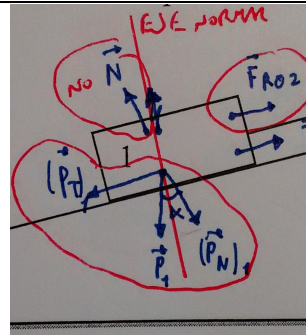 EJE NORMAL
NO
N
F RO2
1
(PT)
P1
α
(PN)1